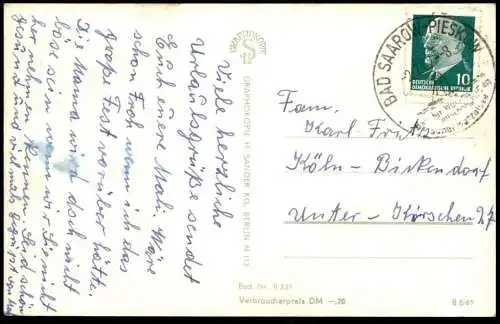 Viele herzliche
Urlaubsgrüße sendet
Euch euere Mali. Wäre
schon froh wenn ich das
große Fest vorüber hätte.
Die Mama wird doch nicht
böse sein wenn wir Sie nicht
her nehmen können. Seid schön
gesund und vielmals gegrüßt von
GRAPHOKOPIE
GRAPHOKOPIE H. SANDER KG, BERLIN N 113
Best.-Nr. B 331
Verbraucherpreis DM -,20
BAD SAAROW-PIESKOW
DEUTSCHE
DEMOKRATISCHE REPUBLIK
10
Fam.
Karl Fritz
Köln-Bickendorf
Unter-Kirschen 27
B 6/61